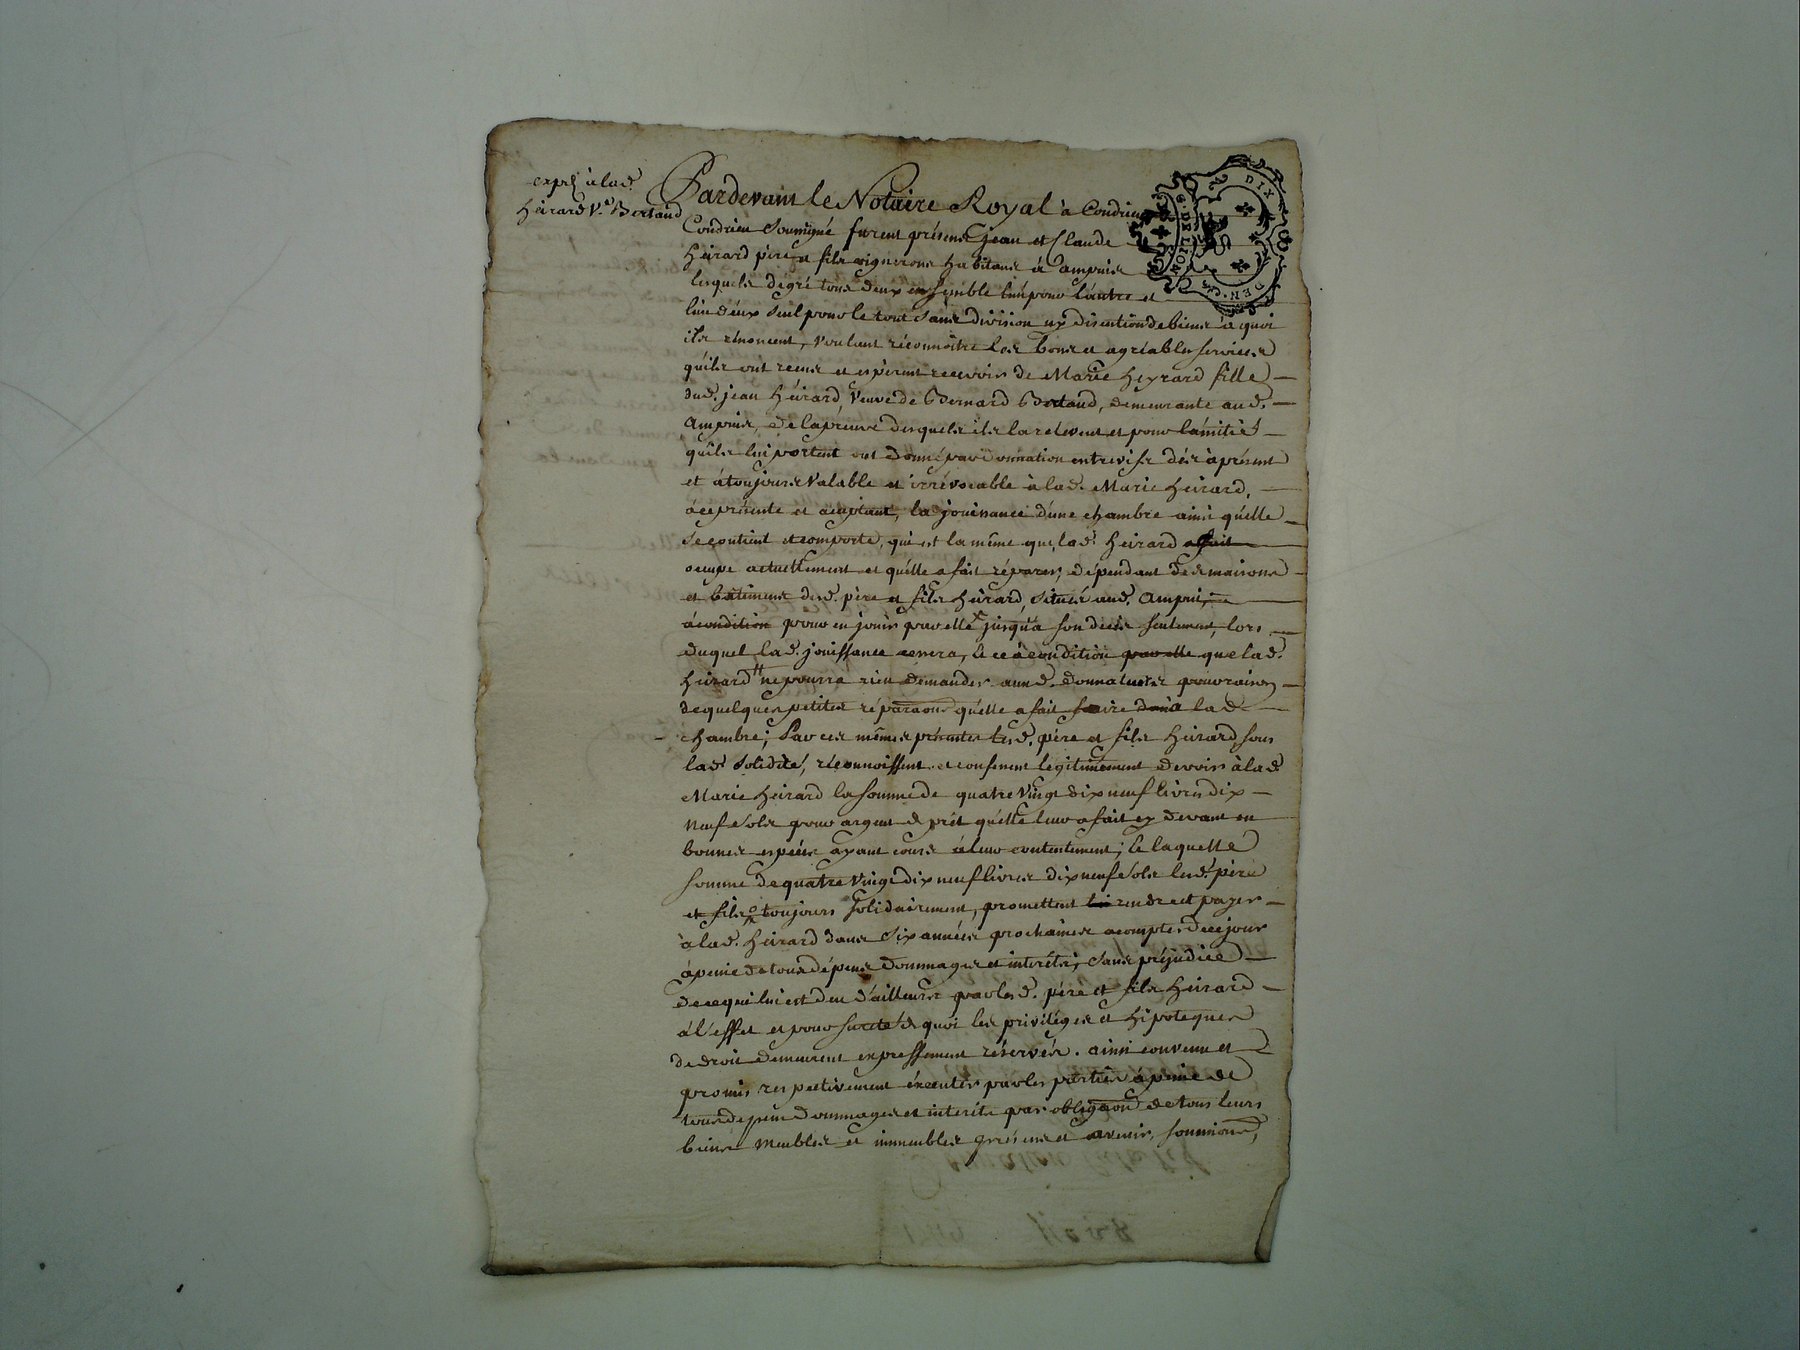 expé à lad.
Heirard Ve Bertaud
Pardevant le Notaire Royal à Condrieu
DIX
DEN. CES
G. DE LION
Condrieu soussigné furent présens jean et Claude
Heirard père et fils vignerons habitans à ampuis
lesquels de gré tous deux ensemble l'un pour l'autre et
l'un d'eux seul pour le tout sans division ny discution de biens à quoi
ils rénoncent, voulant réconnoitre les bons et agréables services
qu'ils ont recus et espèrent recevoir de Marie Heyrard fille
dud. jean Héirard, Veuve de Bernard Bertaud, demeurante aud.
ampuis, de la preuve desquels ils la relevent et pour l'amitié
qu'ils lui portent ont donné par donnation entrevifs dès à présent
et à toujours valable et irrévocable à lad. Marie Heirard,
à ce présente et acceptant, la jouissance d'une chambre ainsi qu'elle
se contient et comporte, qui est la même que lad. Heirard
occupe actuellement et qu'elle a fait réparer, dépendant des maisons
et bâtimens desd. père et fils Heirard, situés aud. ampuis,
à condition pour en jouir par elle jusqu'à son décès seulement, lors
duquel lad. jouissance cessera, & ce à condition par elle que lad.
Heirard ne pourra rien demander auxd. donnateurs pour raison
de quelques petites réparaons qu'elle a fait faire dans lad.
chambre; Par ces mêmes présentes lesd. père et fils Heirard, sous
lad. solidité, réconnoissent et confessent légitimement devoir à lad.
Marie Heirard la somme de quatre vingt dix neuf livres dix
neuf sols pour argent de prêt qu'elle leur a fait cy devant en
bonnes espèces ayant cours à leur contentement; & laquelle
somme de quatre vingt dix neuf livres dix neuf sols lesd. père
et fils toujours solidairement, promettent rendre et payer
à lad. Heirard dans six années prochaines à compter de ce jour
à peine de tous dépens dommages et interêts, sans préjudice
de ce qui lui est deu d'ailleurs par lesd. père et fils Heirard
à l'effet et pour sureté de quoi les privilèges et hipoteques
de droit demeurent expressément réservés. ainsi convenu et
promis respectivement éxecuter par les parties à peine de
tous dépens dommages et interets par obligaon de tous leurs
biens meubles et immeubles présens et avenir, soumions,